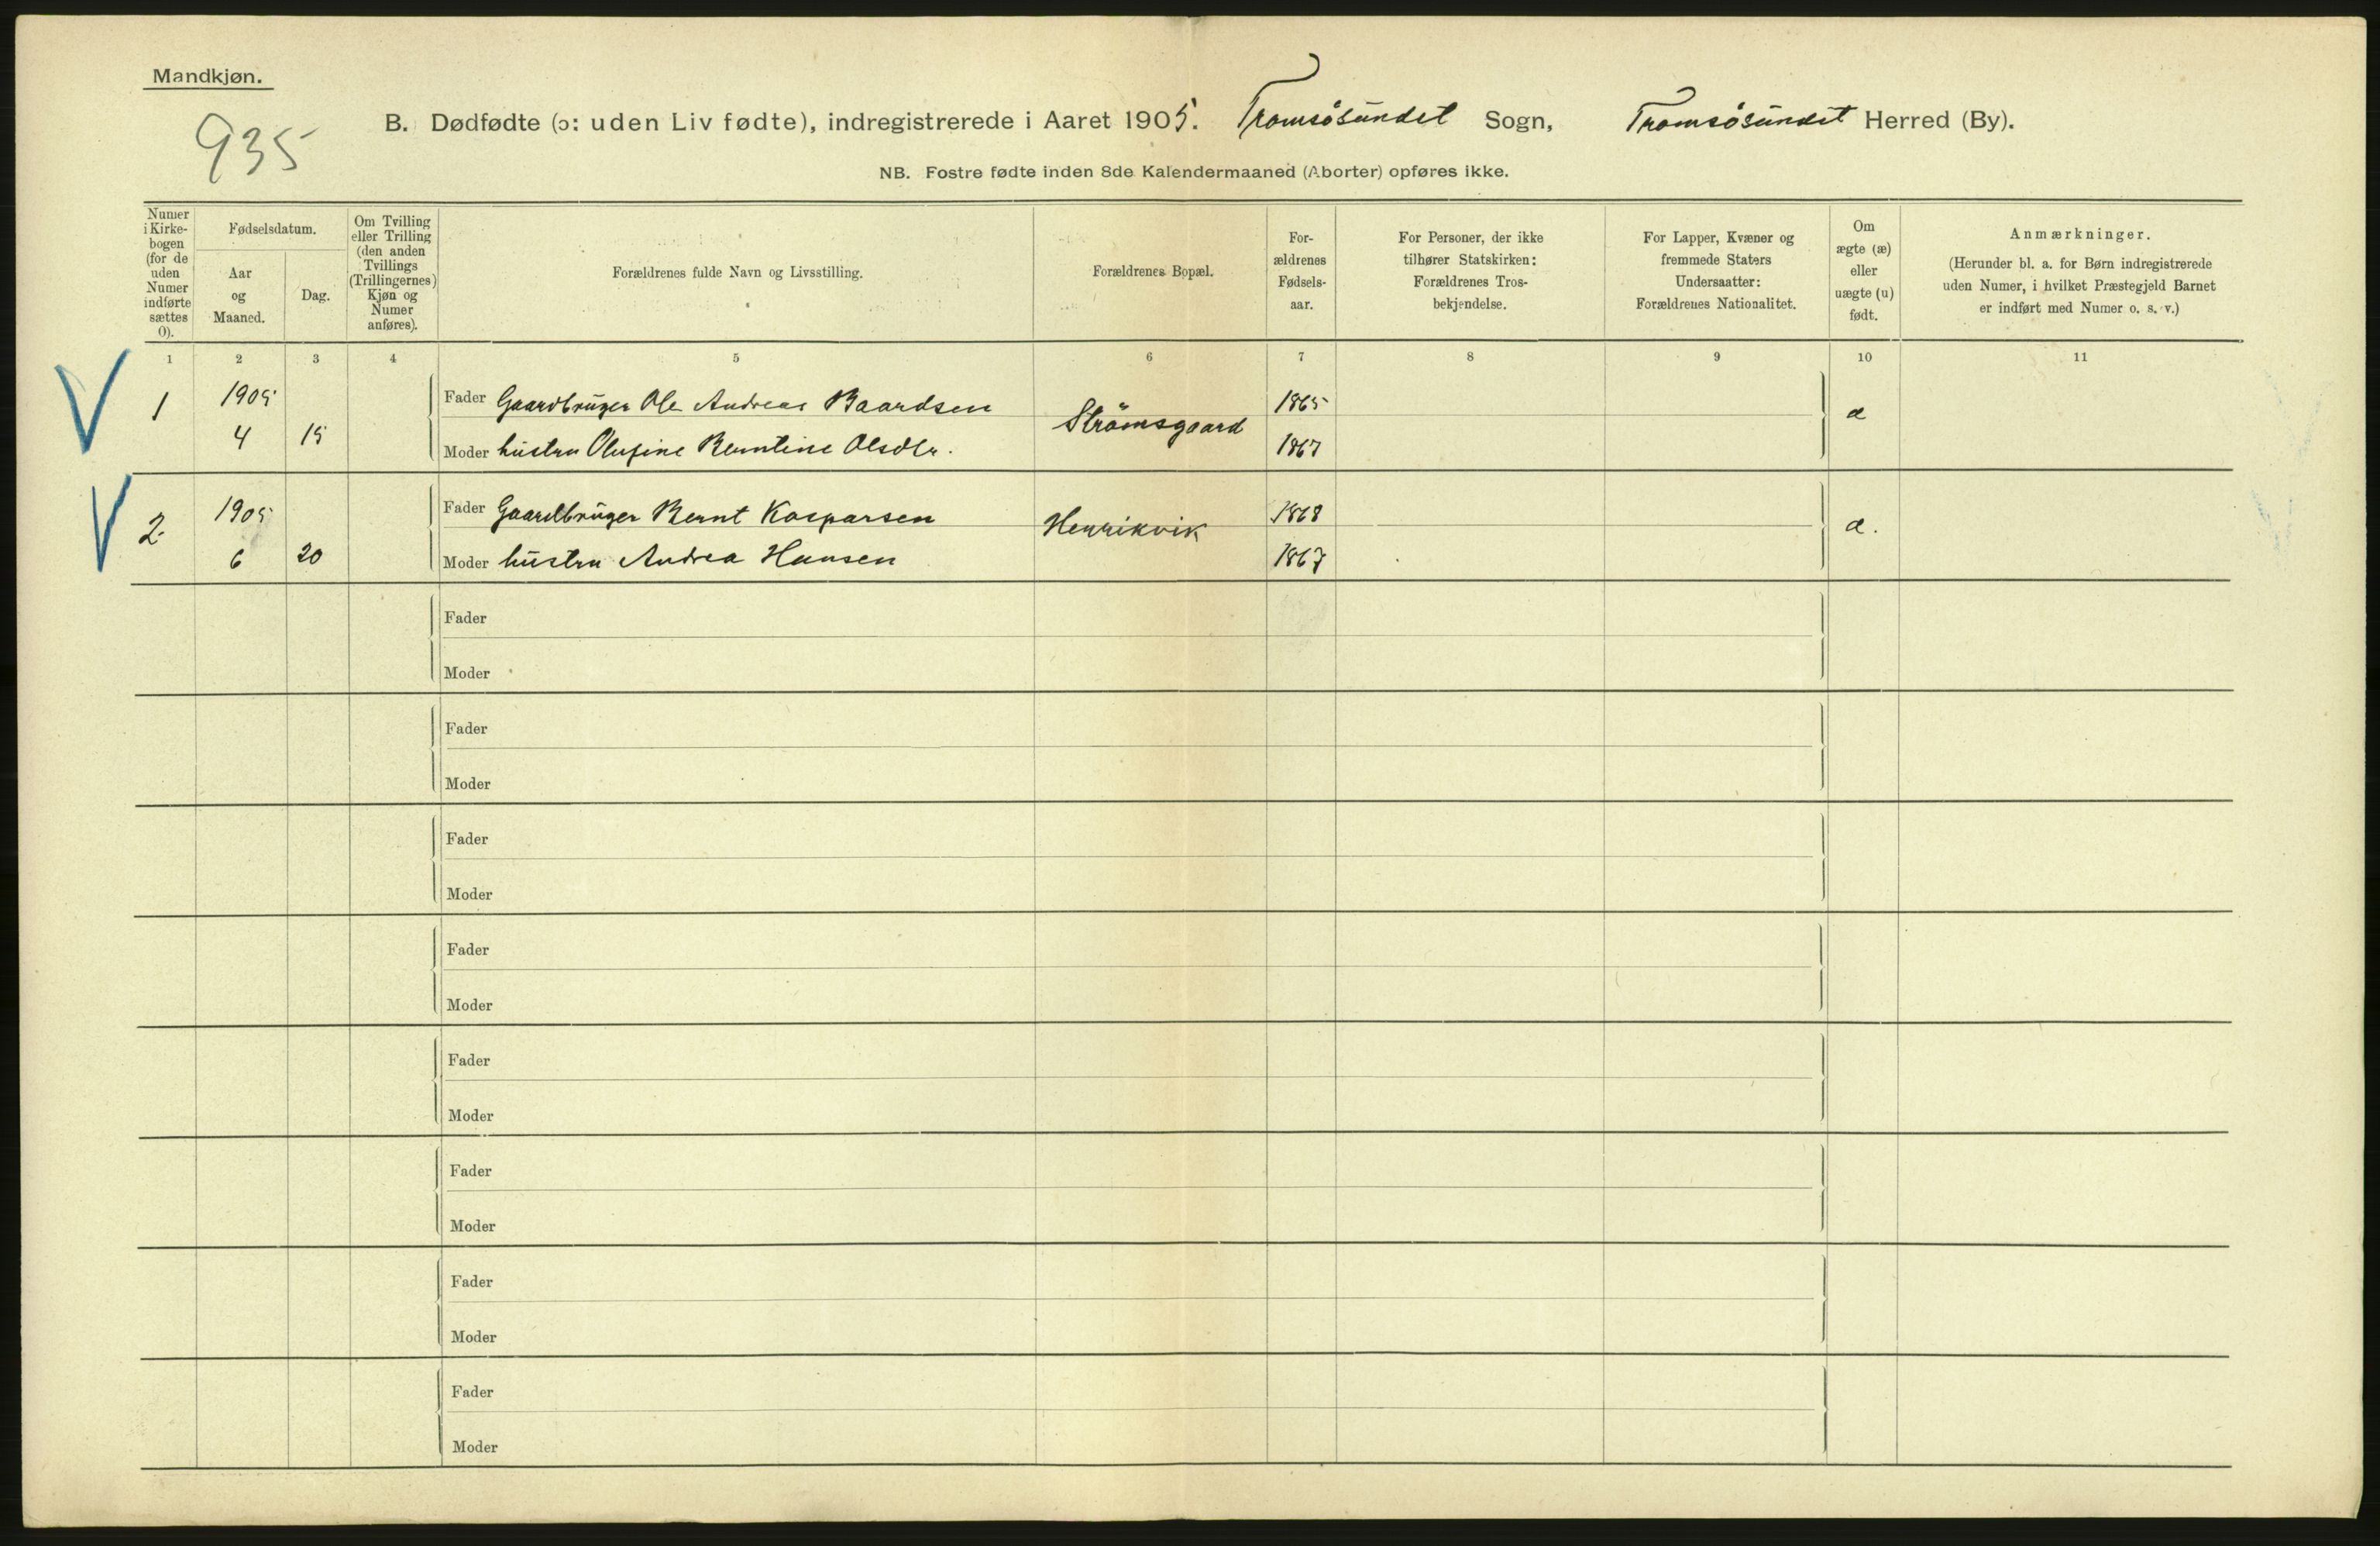 Mandkjøn.
935
B. Dødfødte (ɔ: uden Liv fødte), indregistrerede i Aaret 1905. Tromsøsundet Sogn, Tromsøsundet Herred (By).
NB. Fostre fødte inden 8de Kalendermaaned (Aborter) opføres ikke.
Numer i Kirke-bogen (for de uden Numer indførte sættes 0).
Fødselsdatum.
Aar og Maaned.
Dag.
Om Tvilling eller Trilling (den anden Tvillings (Trillingernes) Kjøn og Numer anføres).
Forældrenes fulde Navn og Livsstilling.
Forældrenes Bopæl.
For-ældrenes Fødsels-aar.
For Personer, der ikke tilhører Statskirken: Forældrenes Tros-bekjendelse.
For Lapper, Kvæner og fremmede Staters Undersaatter: Forældrenes Nationalitet.
Om ægte (æ) eller uægte (u) født.
Anmærkninger.
(Herunder bl. a. for Børn indregistrerede uden Numer, i hvilket Præstegjeld Barnet er indført med Numer o. s. v.)
1 2 3 4 5 6 7 8 9 10 11
1 1905 Fader Gaardbruger Ole Andreas Baardsen Strømsgaard 1865 æ
4 15 Moder hustru Olufine Berntine Olsdtr. 1867
2. 1905 Fader Gaardbruger Bernt Kasparsen Henrikvik 1868 æ.
6 20 Moder hustru Andrea Hansen 1867
Fader
Moder
Fader
Moder
Fader
Moder
Fader
Moder
Fader
Moder
Fader
Moder
Fader
Moder
Fader
Moder